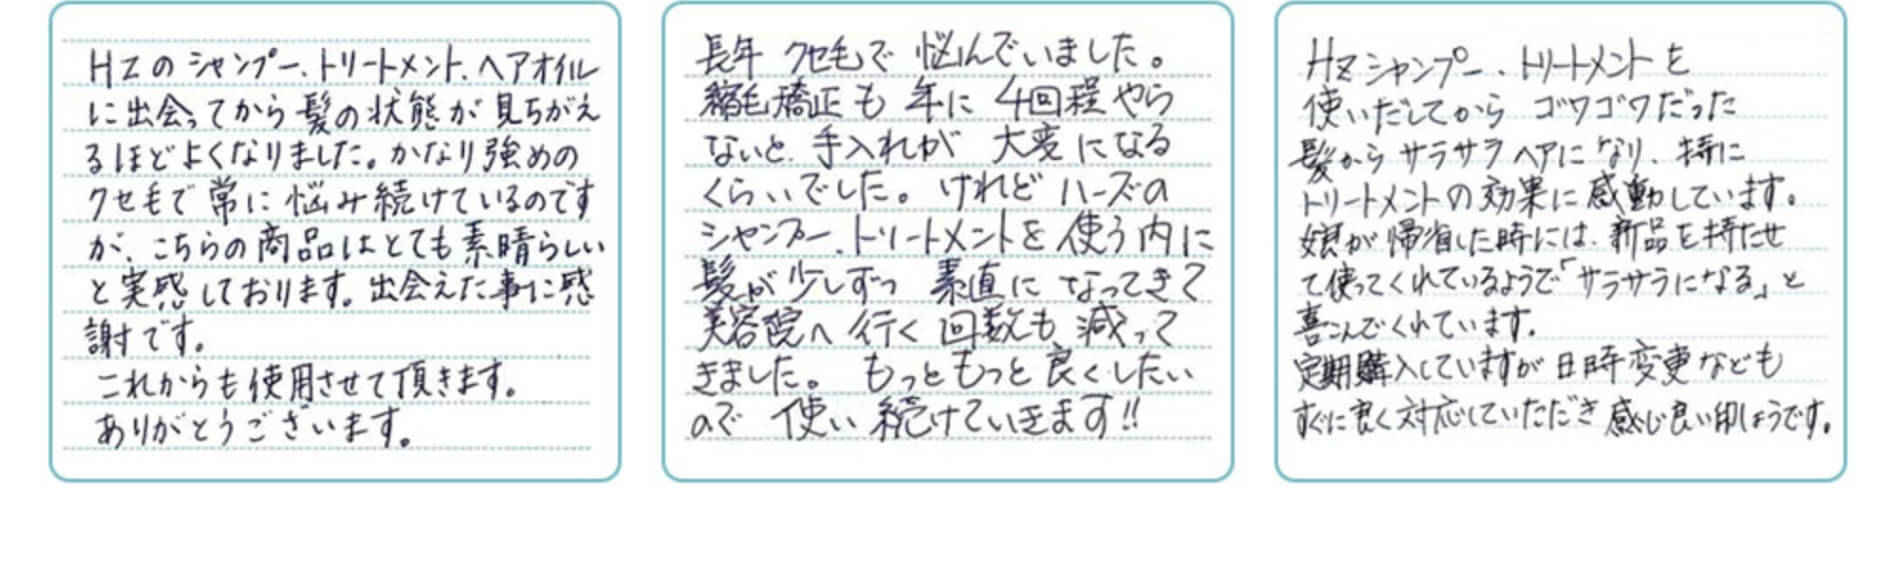 HZのシャンプー、トリートメント、ヘアオイル
に出会ってから髪の状態が見ちがえ
るほどよくなりました。かなり強めの
クセ毛で常に悩み続けているのです
が、こちらの商品はとても素晴らしい
と実感しております。出会えた事に感
謝です。
これからも使用させて頂きます。
ありがとうございます。
長年 クセ毛で 悩んでいました。
縮毛矯正も 年に 4回程やら
ないと、手入れが 大変になる
くらいでした。けれど ハーズの
シャンプー、トリートメントを使う内に
髪が少しずつ 素直に なってきて
美容院へ 行く 回数も、減って
きました。 もっともっと良くしたい
ので 使い 続けていきます!!
HZシャンプー、トリートメントを
使いだしてから ゴワゴワだった
髪からサラサラヘアになり、特に
トリートメントの効果に感動しています。
娘が帰省した時には、新品を持たせ
て使ってくれているようで「サラサラになる」と
喜こんでくれています。
定期購入していますが日時変更なども
すぐに良く対応していただき感じ良い印しょうです。